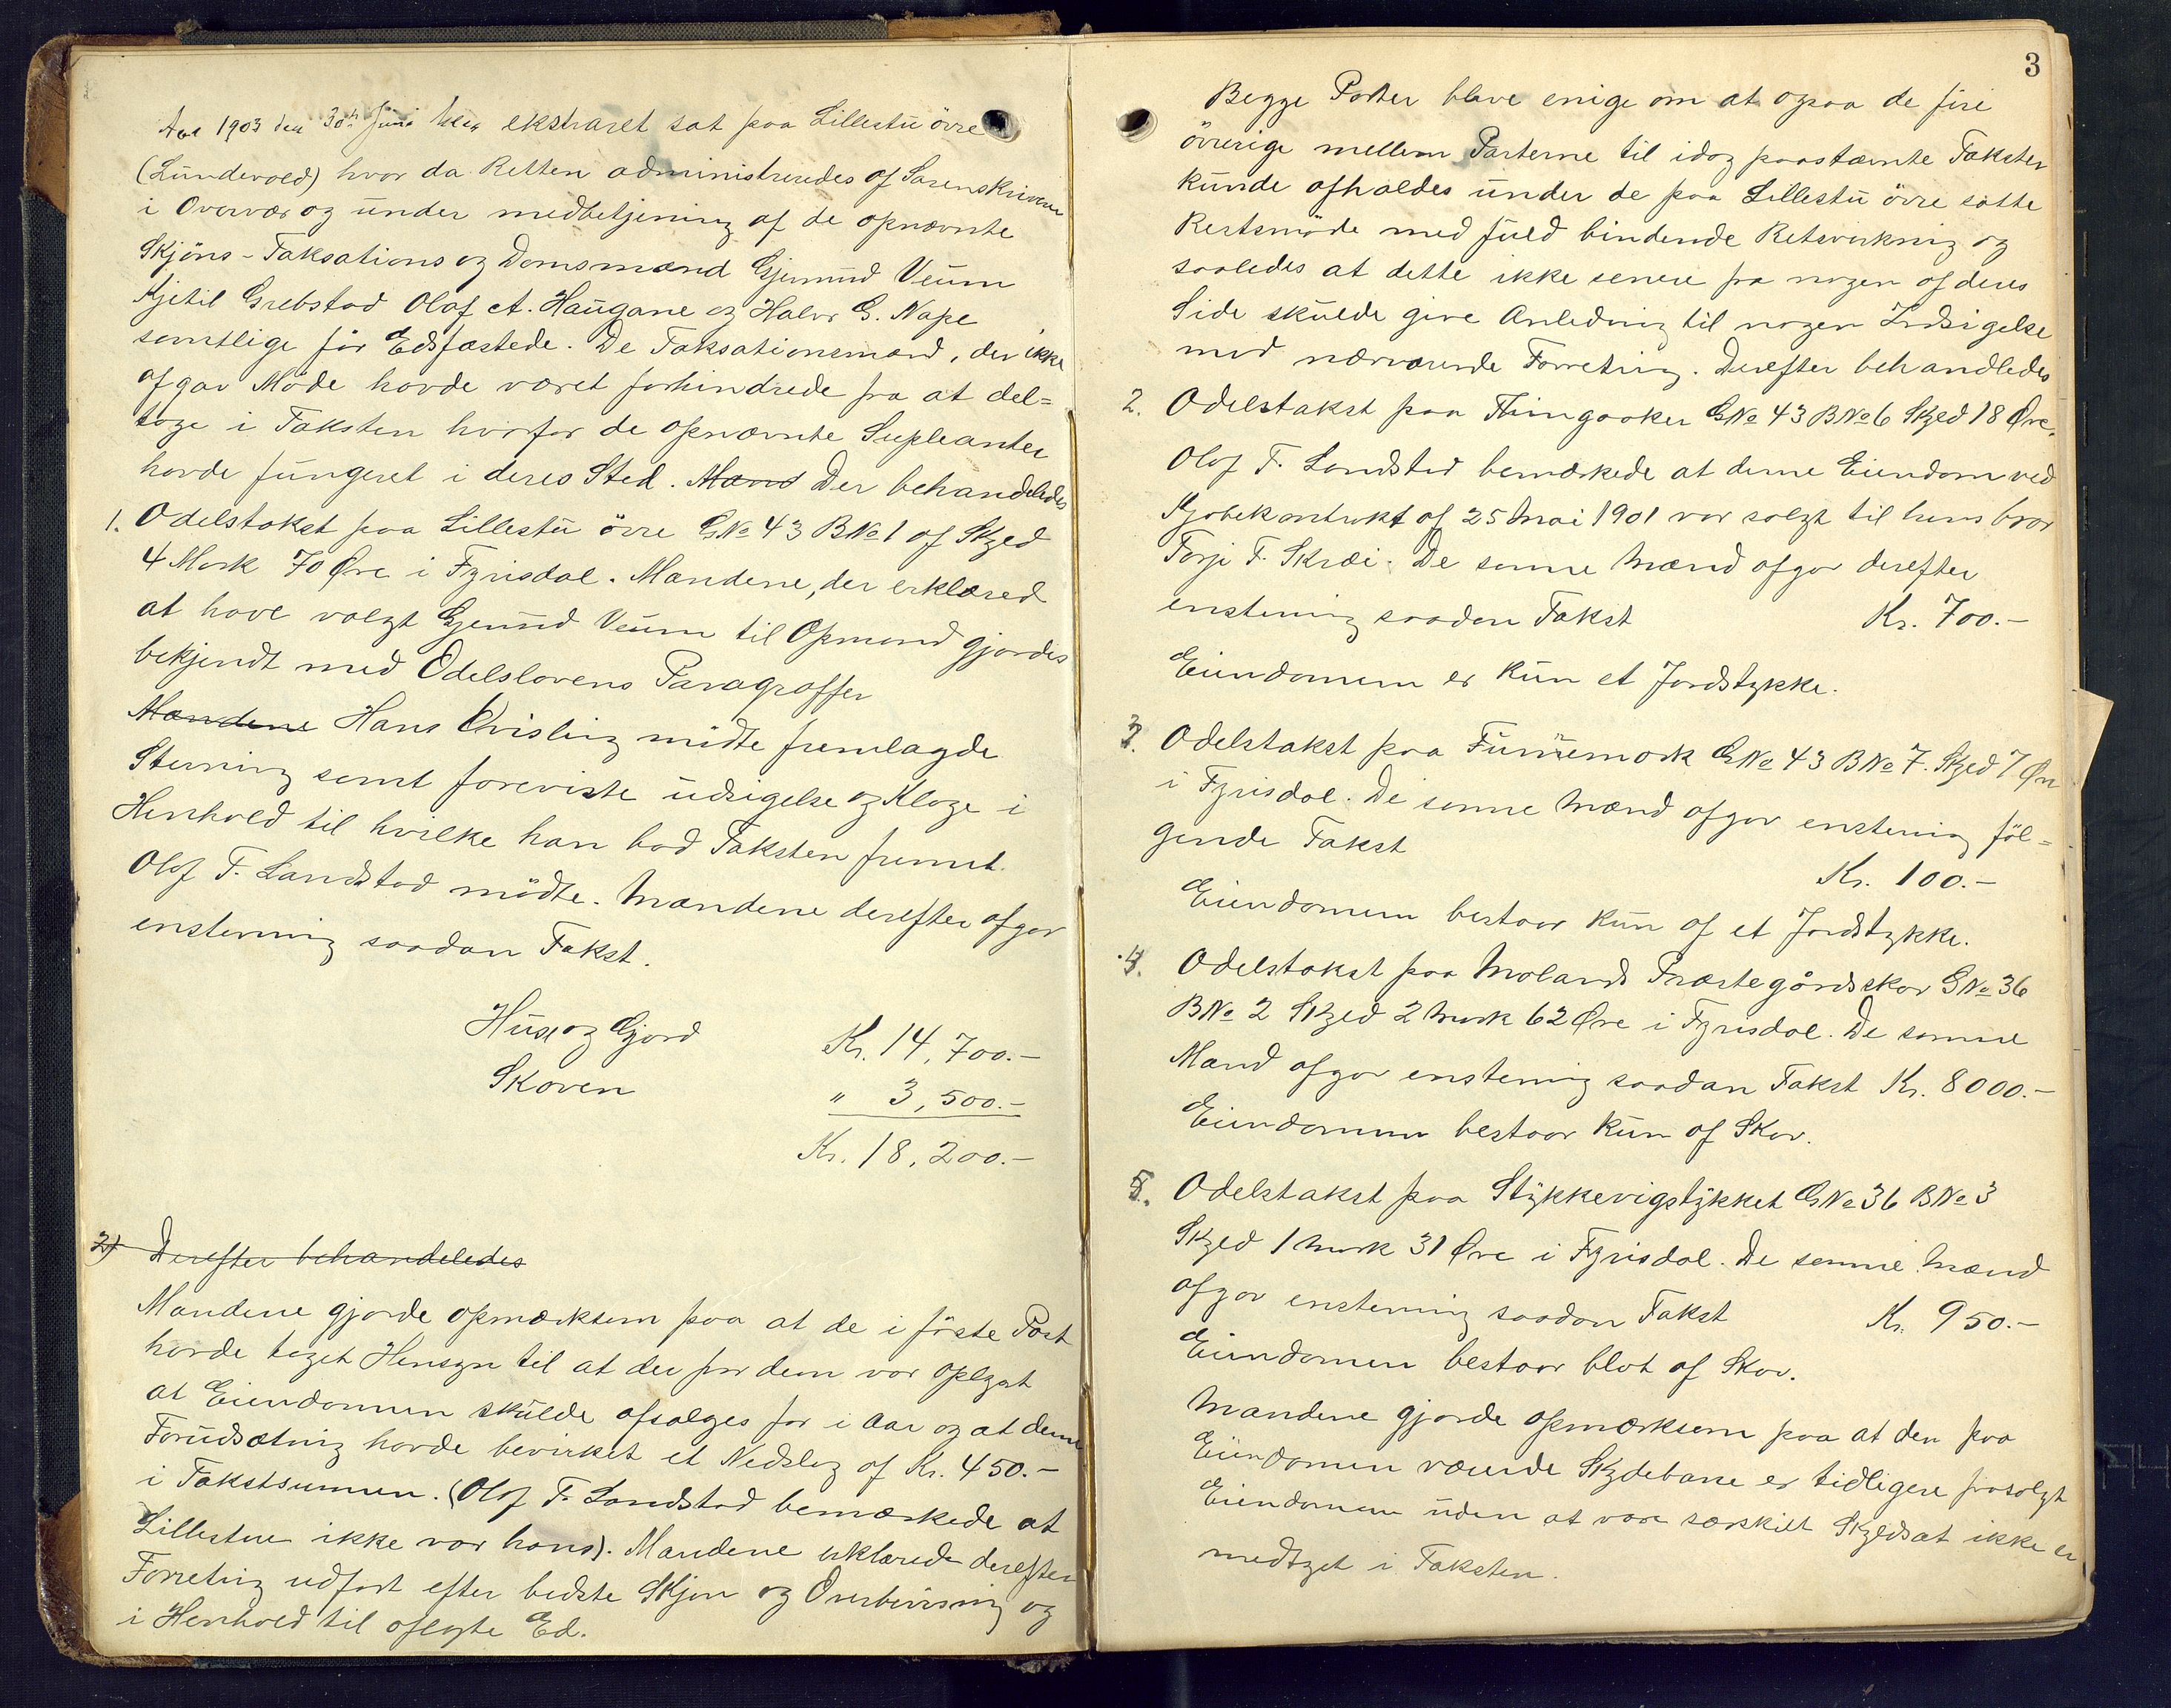 Aar 1903 den 30te Juni blev ekstraret sat paa Lillestu övre
(Lundevold) hvor da Retten administreredes af Sorenskriveren
i Overvær og under medbetjening af de opnævnte
Skjöns-Taksations og Domsmænd Gjermund Veum
Kjetil Grebstad Olaf A. Haugane og Halvor G. Nape
samtlige för Edsfæstede. De Taksationsmænd, der ikke
afgav Möde havde været forhindrede fra at del=
tage i Taksten hvorfor de opnævnte Supleanter
havde fungeret i deres Sted. Mænd Der behandledes
1. Odelstakst paa Lillestu övre GNo 43 BNo 1 af Skyld
4 Mark 70 Øre i Fyrisdal. Mændene, der erklæred
at have valgt Gjermund Veum til Opmand gjordes
bekjendt med Odelslovens Paragraffer
Mændene Hans Qvisling mödte fremlagde
Stevning samt foreviste udsigelse og Klage i
Henhold til hvilke han bad Taksten fremmet.
Olaf T. Landstad mödte. Mændene derefter afgav
enstemmig saadan Takst.
Huse og Gjord Kr. 14,700.-
Skoven " 3,500.-
Kr. 18,200.-
2) Derefter behandeledes
Mændene gjorde opmærksom paa at de i förste Post
havde taget Hensyn til at der for dem var oplyst
at Eiendommen skulde afsælges for i Aar og at denne
Forudsætning havde bevirket et Nedslag af Kr. 450.-
i Takstsummen. (Olaf T. Landstad bemærkede at
Lillestue ikke var hans). Mændene erklærede derefter
Forretnig udfört efter bedste Skjön og Overbevisning og
i Henhold til aflagte Ed.
3
Begge Parter bleve enige om at ogsaa de fire
övrige mellem Parterne til idag paastævnte Takster
kunde afholdes under de paa Lillestu övre satte
Restsmöde med fuld bindende Retsvirkning og
saaledes at dette ikke senere fra nogen af deres
Side skulde give Anledning til nogen Indsigelse
mod nærværende Forretning. Derefter behandledes
2. Odelstakst paa Thingaaker GNo 43 BNo 6 Skyld 18 Øre.
Olaf T. Landstad bemærkede at denne Eiendom ved
Kjøbekontrakt af 25 Mai 1901 var solgt til hans bror
Torje T. Skræi. De samme Mænd afgav derefter
enstemmig saadan Takst Kr. 700.-
Eiendommen er kun et Jordstykke.
3. Odelstakst paa Furuemork GNo 43 BNo 7. Skyld 7 Øre
i Fyrisdal. De samme Mænd afgav enstemmig föl=
gende Takst Kr. 100.-
Eiendommen bestaar kun af et Jordstykke.
4. Odelstakst paa Molands Præstegårdsskov GNo 36
BNo 2 Skyld 2 Mark 62 Øre i Fyrisdal. De samme
Mænd afgav enstemmig saadan Takst Kr. 8000.-
Eiendommen bestaar kun af Skov.
5. Odelstakst paa Stykkevigstykket GNo 36 BNo 3
Skyld 1 Mark 31 Øre i Fyrisdal. De samme Mænd
afgav enstemmig saadan Takst Kr. 950.-
Eiendommen bestaar blot af Skov.
Mændene gjorde opmærksom paa at den paa
Eiendommen værende Skydebane er tidligere frasolgt
Eiendommen uden at være særskilt Skyldsat ikke er
medtaget i Taksten.